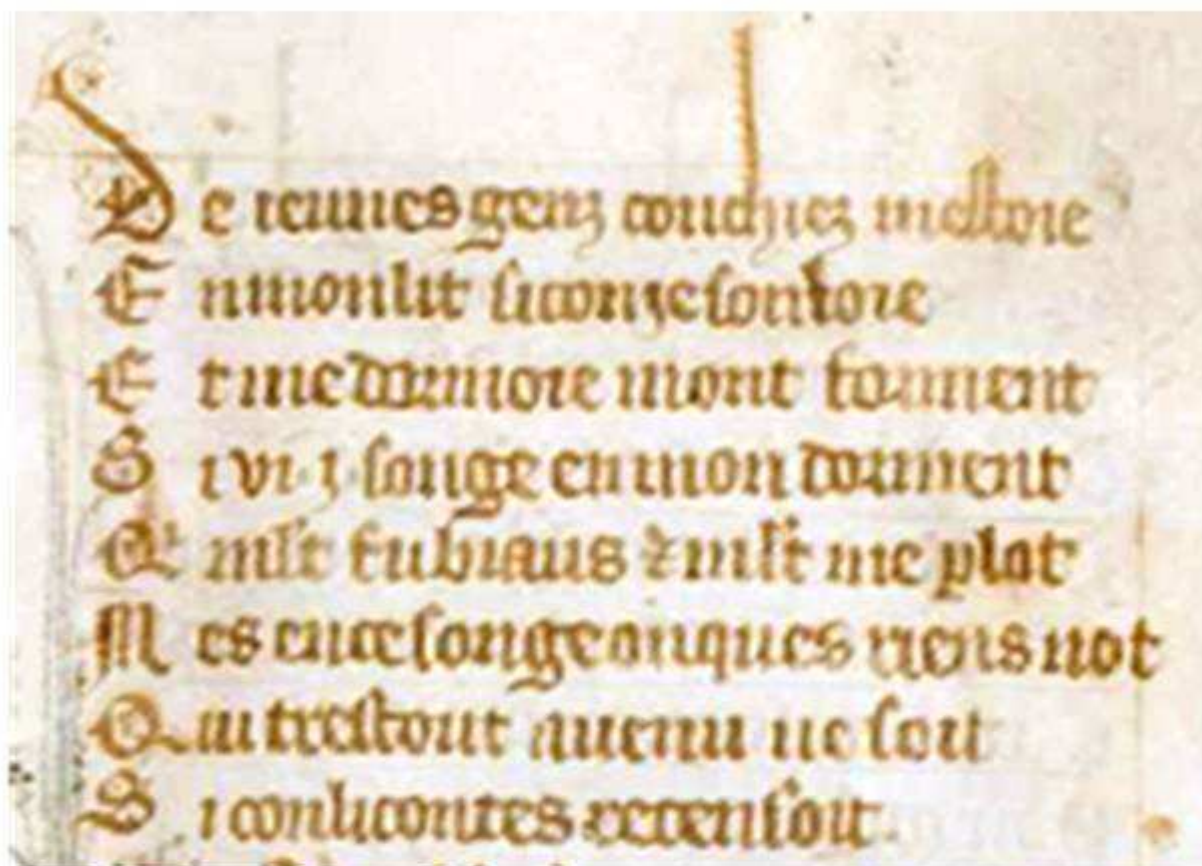 De ieunes genz couchiez mestoie
En mon lit si com ie souloie
Et me dormoie mout forment
Si vi .i. songe en mon dorment
Qi mlt fu biaus ⁊ mlt me plot
Mes en ce songe onques riens not
Qui trestout auenu ne soit
Si con li contes recensoit